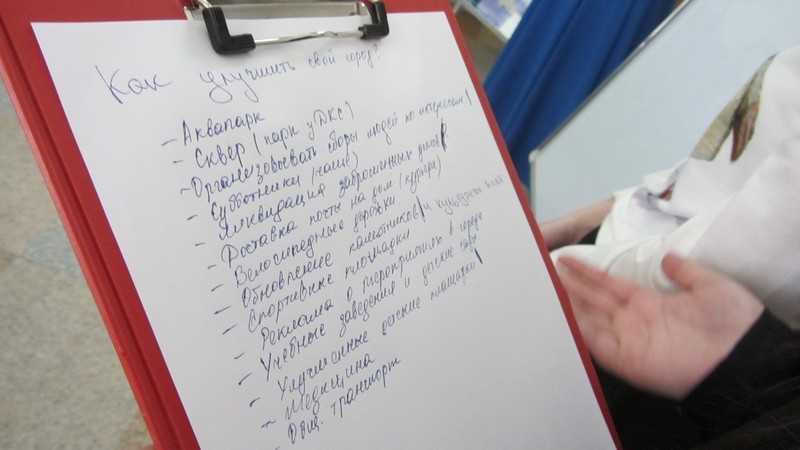 Как улучшить свой город?
- Аквапарк
- Сквер (парк у ДКС)
- Организовывать сборы людей по интересам
- Субботники (чаще)
- Ликвидация заброшенных домов
- Доставка почты на дом (курьер)
- Велосипедные дорожки
- Обновление памятников и культурных мест
- Спортивные площадки
- Реклама о мероприятиях в городе
- Учебные заведения и детские сады
- Улучшенные детские площадки
- Медицина
- Общ. транспорт